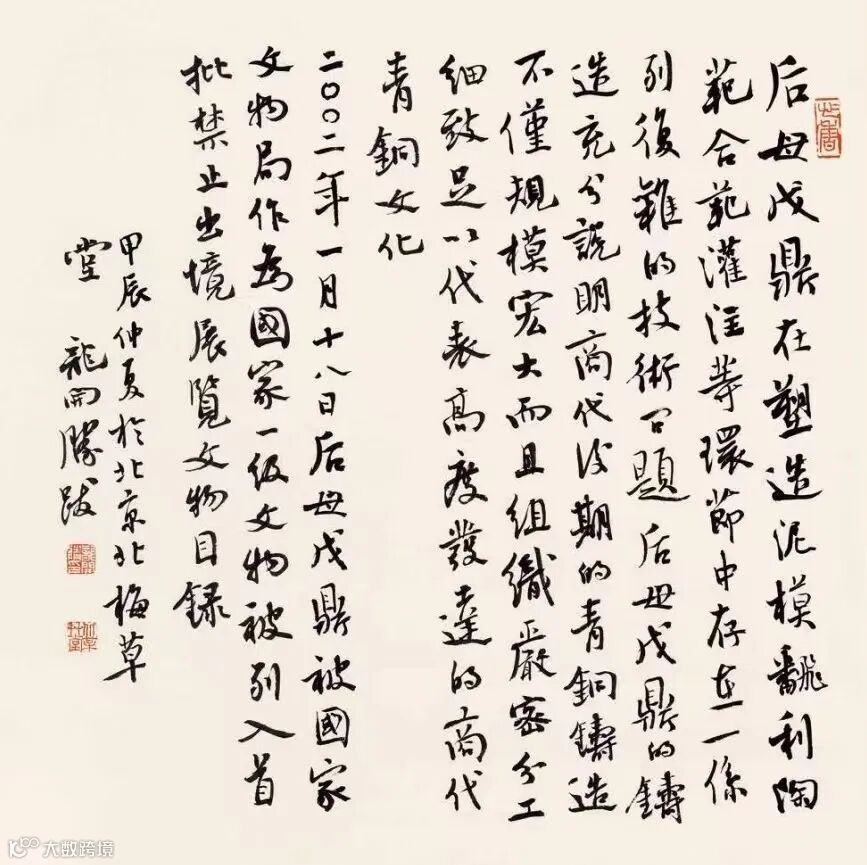 后母戊鼎在塑造泥模飜利陶
範合範灌注等環節中存在一係
列復雜的技術問題后母戊鼎的鑄
造充分說明商代後期的青銅鑄造
不僅規模宏大而且組織嚴密分工
細致足以代表高度發達的商代
青銅文化
二〇〇二年一月十八日后母戊鼎被國家
文物局作為國家一級文物被列入首
批禁止出境展覽文物目録
甲辰仲夏於北京北梅草
堂 龍開勝跋
大数跨境